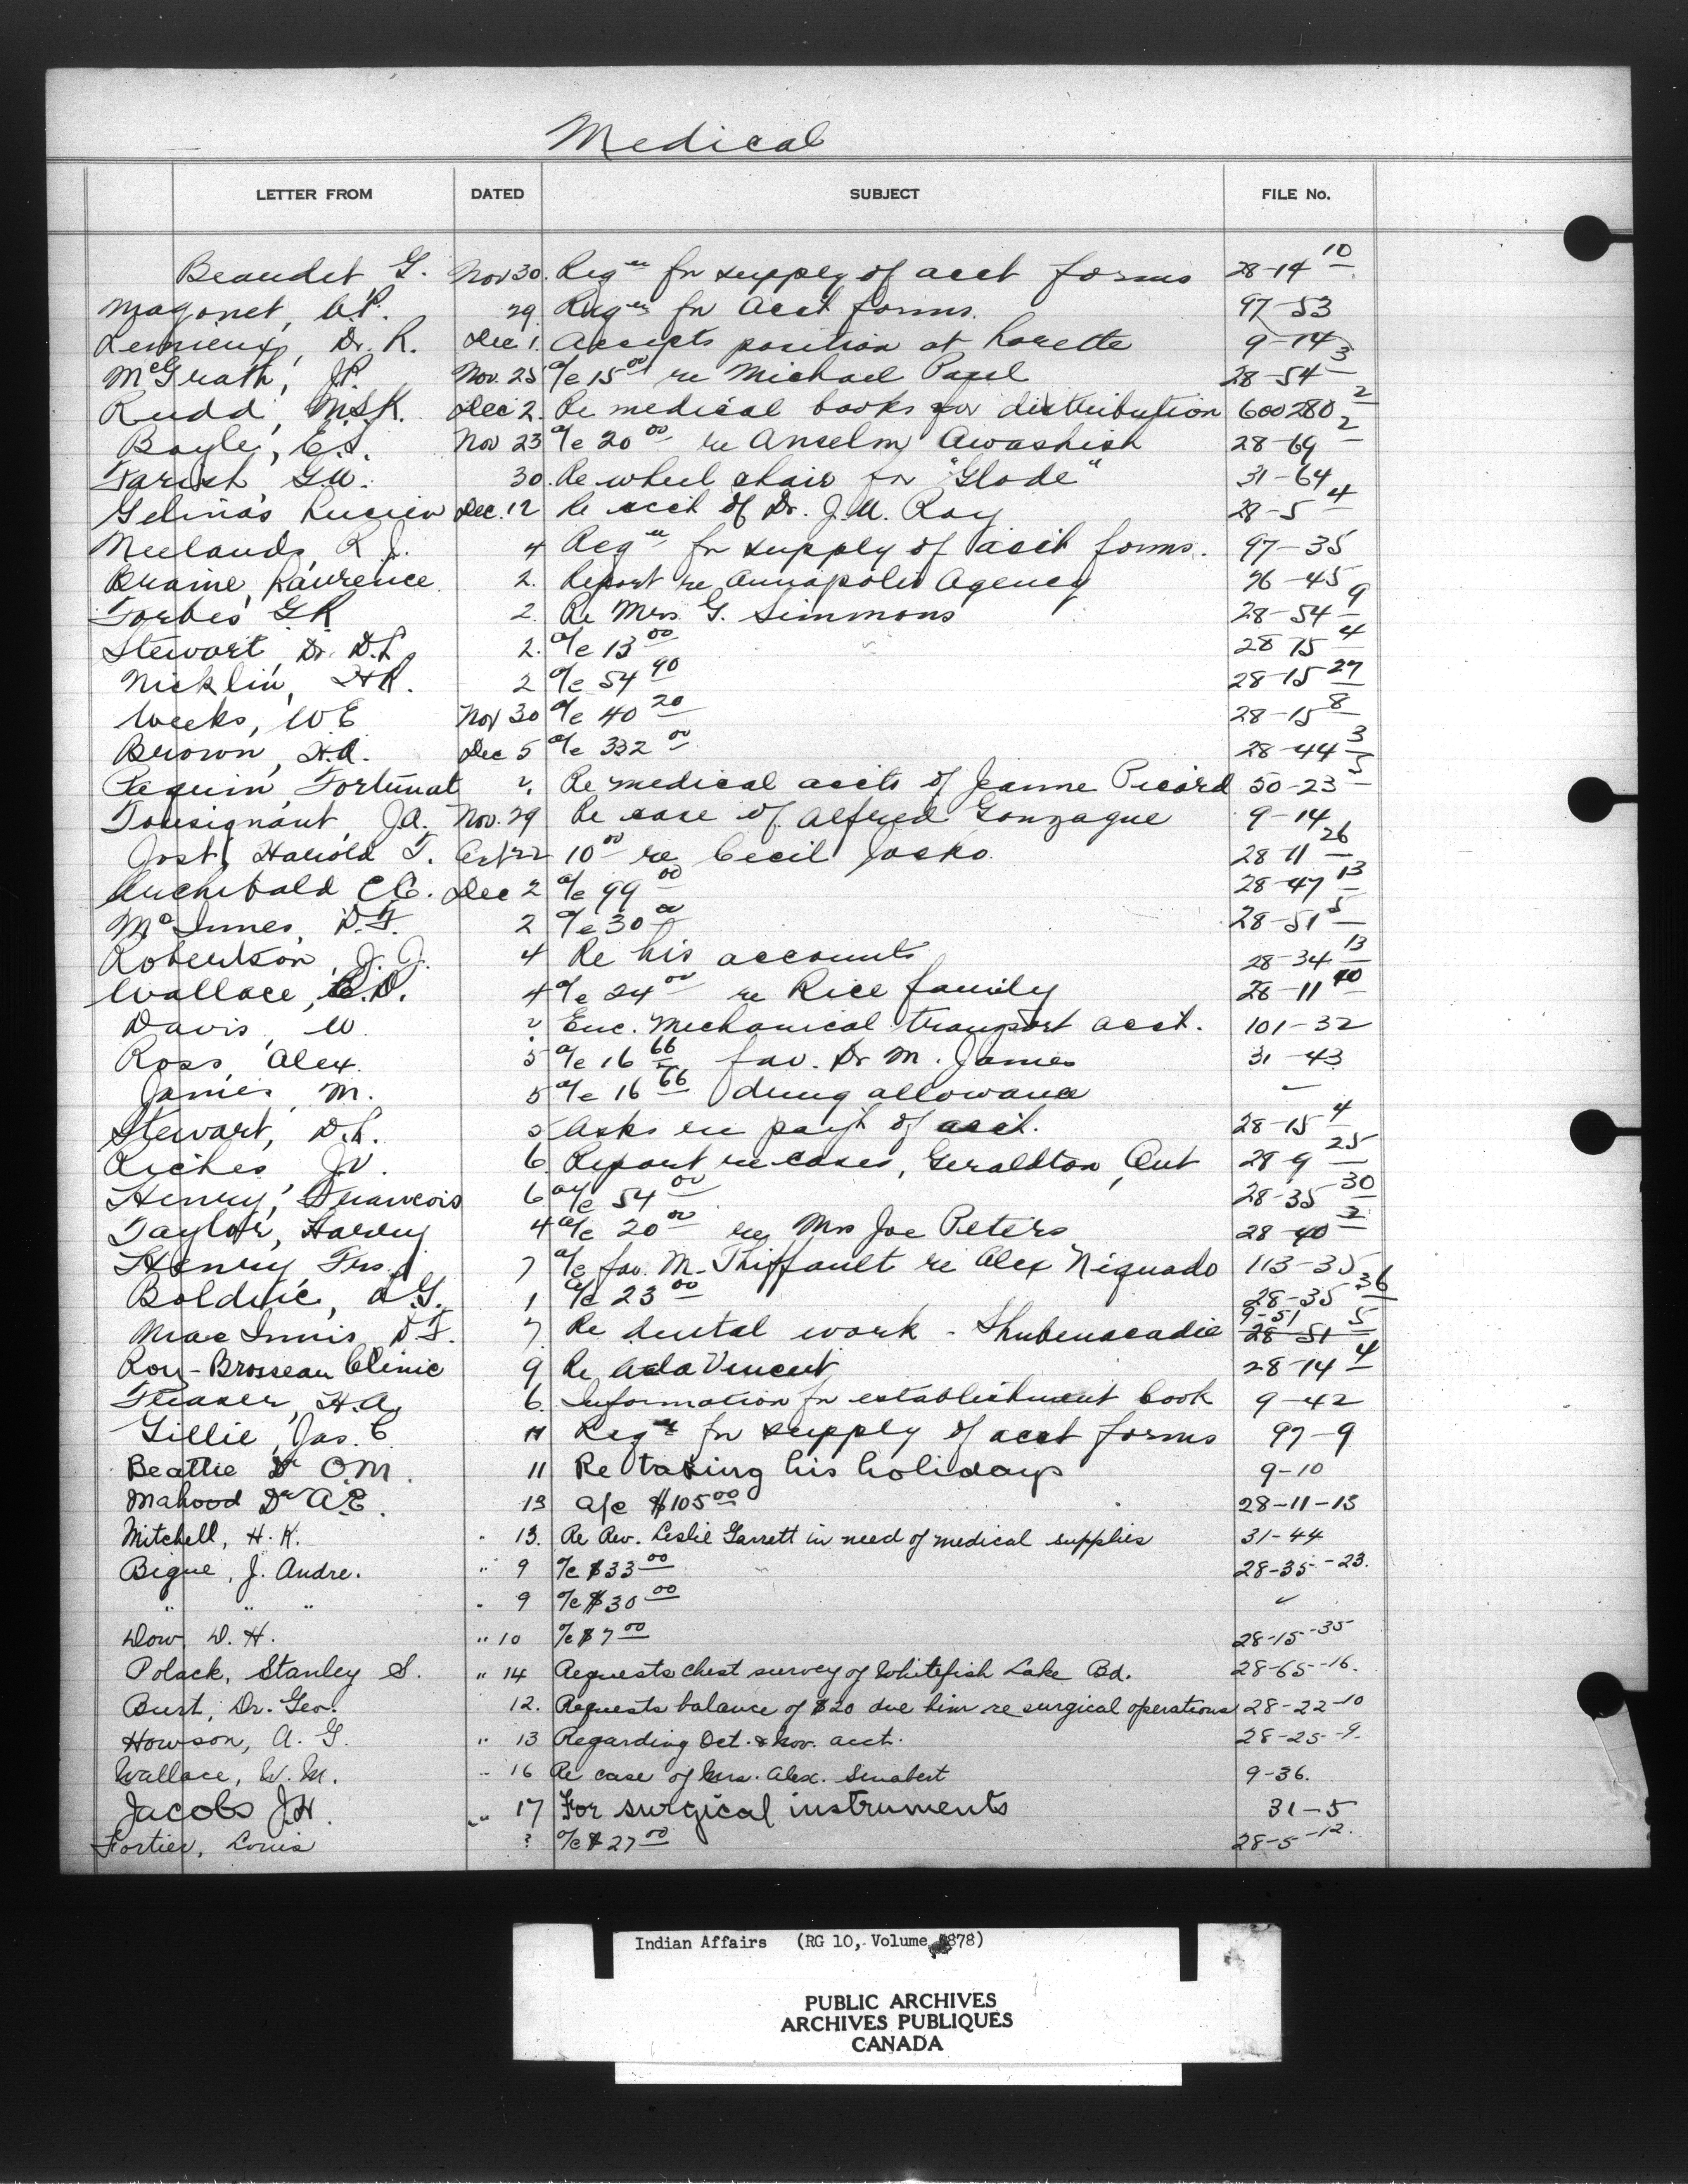 Medical
LETTER FROM DATED SUBJECT FILE No.
Beaudet G. Nov 30. Reqn for supply of acct forms 28-14 10
Magonet, A.P. 29 Reqn for acct forms. 97-53
Lemieux, Dr. R. Dec 1. Accepts position at Lorette 9-14
McGrath, J.P. Nov. 25 a/c 15 00 re Michael Paul 28-54 3
Rudd, M.S.K. Dec 2. Re medical books for distribution 600280 2
Boyle, E.S. Nov 23 a/c 20 00 re Anselm Awashish 28-69 2
Farish, G.W. 30. Re wheel chair for "Glode" 31-64
Gelinas, Lucien Dec. 12 Re acct of Dr. J.U. Roy 28-5 4
Neelands, R.J. 4 Reqn for supply of acct forms. 97-35
Braine, Laurence 2. Report re Annapolis Agency 76-45
Forbes G.R. 2. Re Mrs G. Simmons 28-54 9
Stewart, Dr. D.L. 2. a/c 13 00 28 15 4
Nicklin, H.R. 2 a/c 54 90 28-15 27
Weeks, W.E. Nov 30 a/c 40 20 28-15 8
Brown, H.A. Dec 5 a/c 332 00 28-44 3
Paquin, Fortunat 2. Re medical accts of Jeanne Picard 50-23 5
Tousignant, J.A. Nov. 29 Re case of Alfred Gonzague 9-14
Jost, Harold T. Oct 22 10 00 re Cecil 28 11 26
Archibald C.E. Dec 2 a/c 99 00 28-47 13
McInnes, D.F. 2 a/c 30 00 28-51 5
Robertson, J.J. 4 Re his accounts 28-34 13
Wallace, C.D. 4 a/c 24 00 re Rice family 28-11 40
Davis, W. 2 Enc. Mechanical transport acct. 101-32
Ross, Alex. 5 a/c 16 66 fav. Dr M. James 31-43
James, M. 5 a/c 16 66 drug allowance
Stewart, D.L. 5 Asks re pay't of acct. 28-15 4
Riches, J.V. 6 Report re cases, Geraldton, Ont 28-9 25
Henry, Francois 6 a/c 54 00 28-35 30
Taylor, Harvey 4 a/c 20 00 re Mrs Joe Peters 28-40 2
Henry, Frs. 7 a/c fav. M. Thiffault re Alex Niquado 113-35
Bolduc, A.G. 1 a/c 23 00 28-35 36
MacInnis, D.F. 7. Re dental work - Shubenacadie 9-51 28-51 5
Roy-Brosseau Clinic 9 Re Ada Vincent 28-14 4
Fraser, H.A. 6. Information for establishment book 9-42
Gillie, Jas. C. 11 Reqn for supply of acct forms 97-9
Beattie Dr O.M. 11 Re taking his holidays 9-10
Mahood Dr A.E. 13 a/c $105 00 28-11-13
Mitchell, H.K. " 13. Re Rev. Leslie Garrett in need of medical supplies 31-44
Bigue, J. Andre. " 9 a/c $33 00 28-35-23.
" " " " 9 a/c $30 00 ✓
Dow, D.H. " 10 a/c $7 00 28-15-35
Polack, Stanley S. " 14 Requests chest survey of Whitefish Lake Bd. 28-65-16.
Burt, Dr. Geo. 12. Requests balance of $20 due him re surgical operations 28-22-10
Howson, A.G. " 13 Regarding Oct. & Nov. acct. 28-25-9.
Wallace, W.M. " 16 Re case of Mrs. Alex. 9-36.
Jacobs J.H. " 17 For surgical instruments 31-5
Fortier, Louis ? a/c $27 00 28-5-12.
Indian Affairs (RG 10, Volume 878)
PUBLIC ARCHIVES
ARCHIVES PUBLIQUES
CANADA